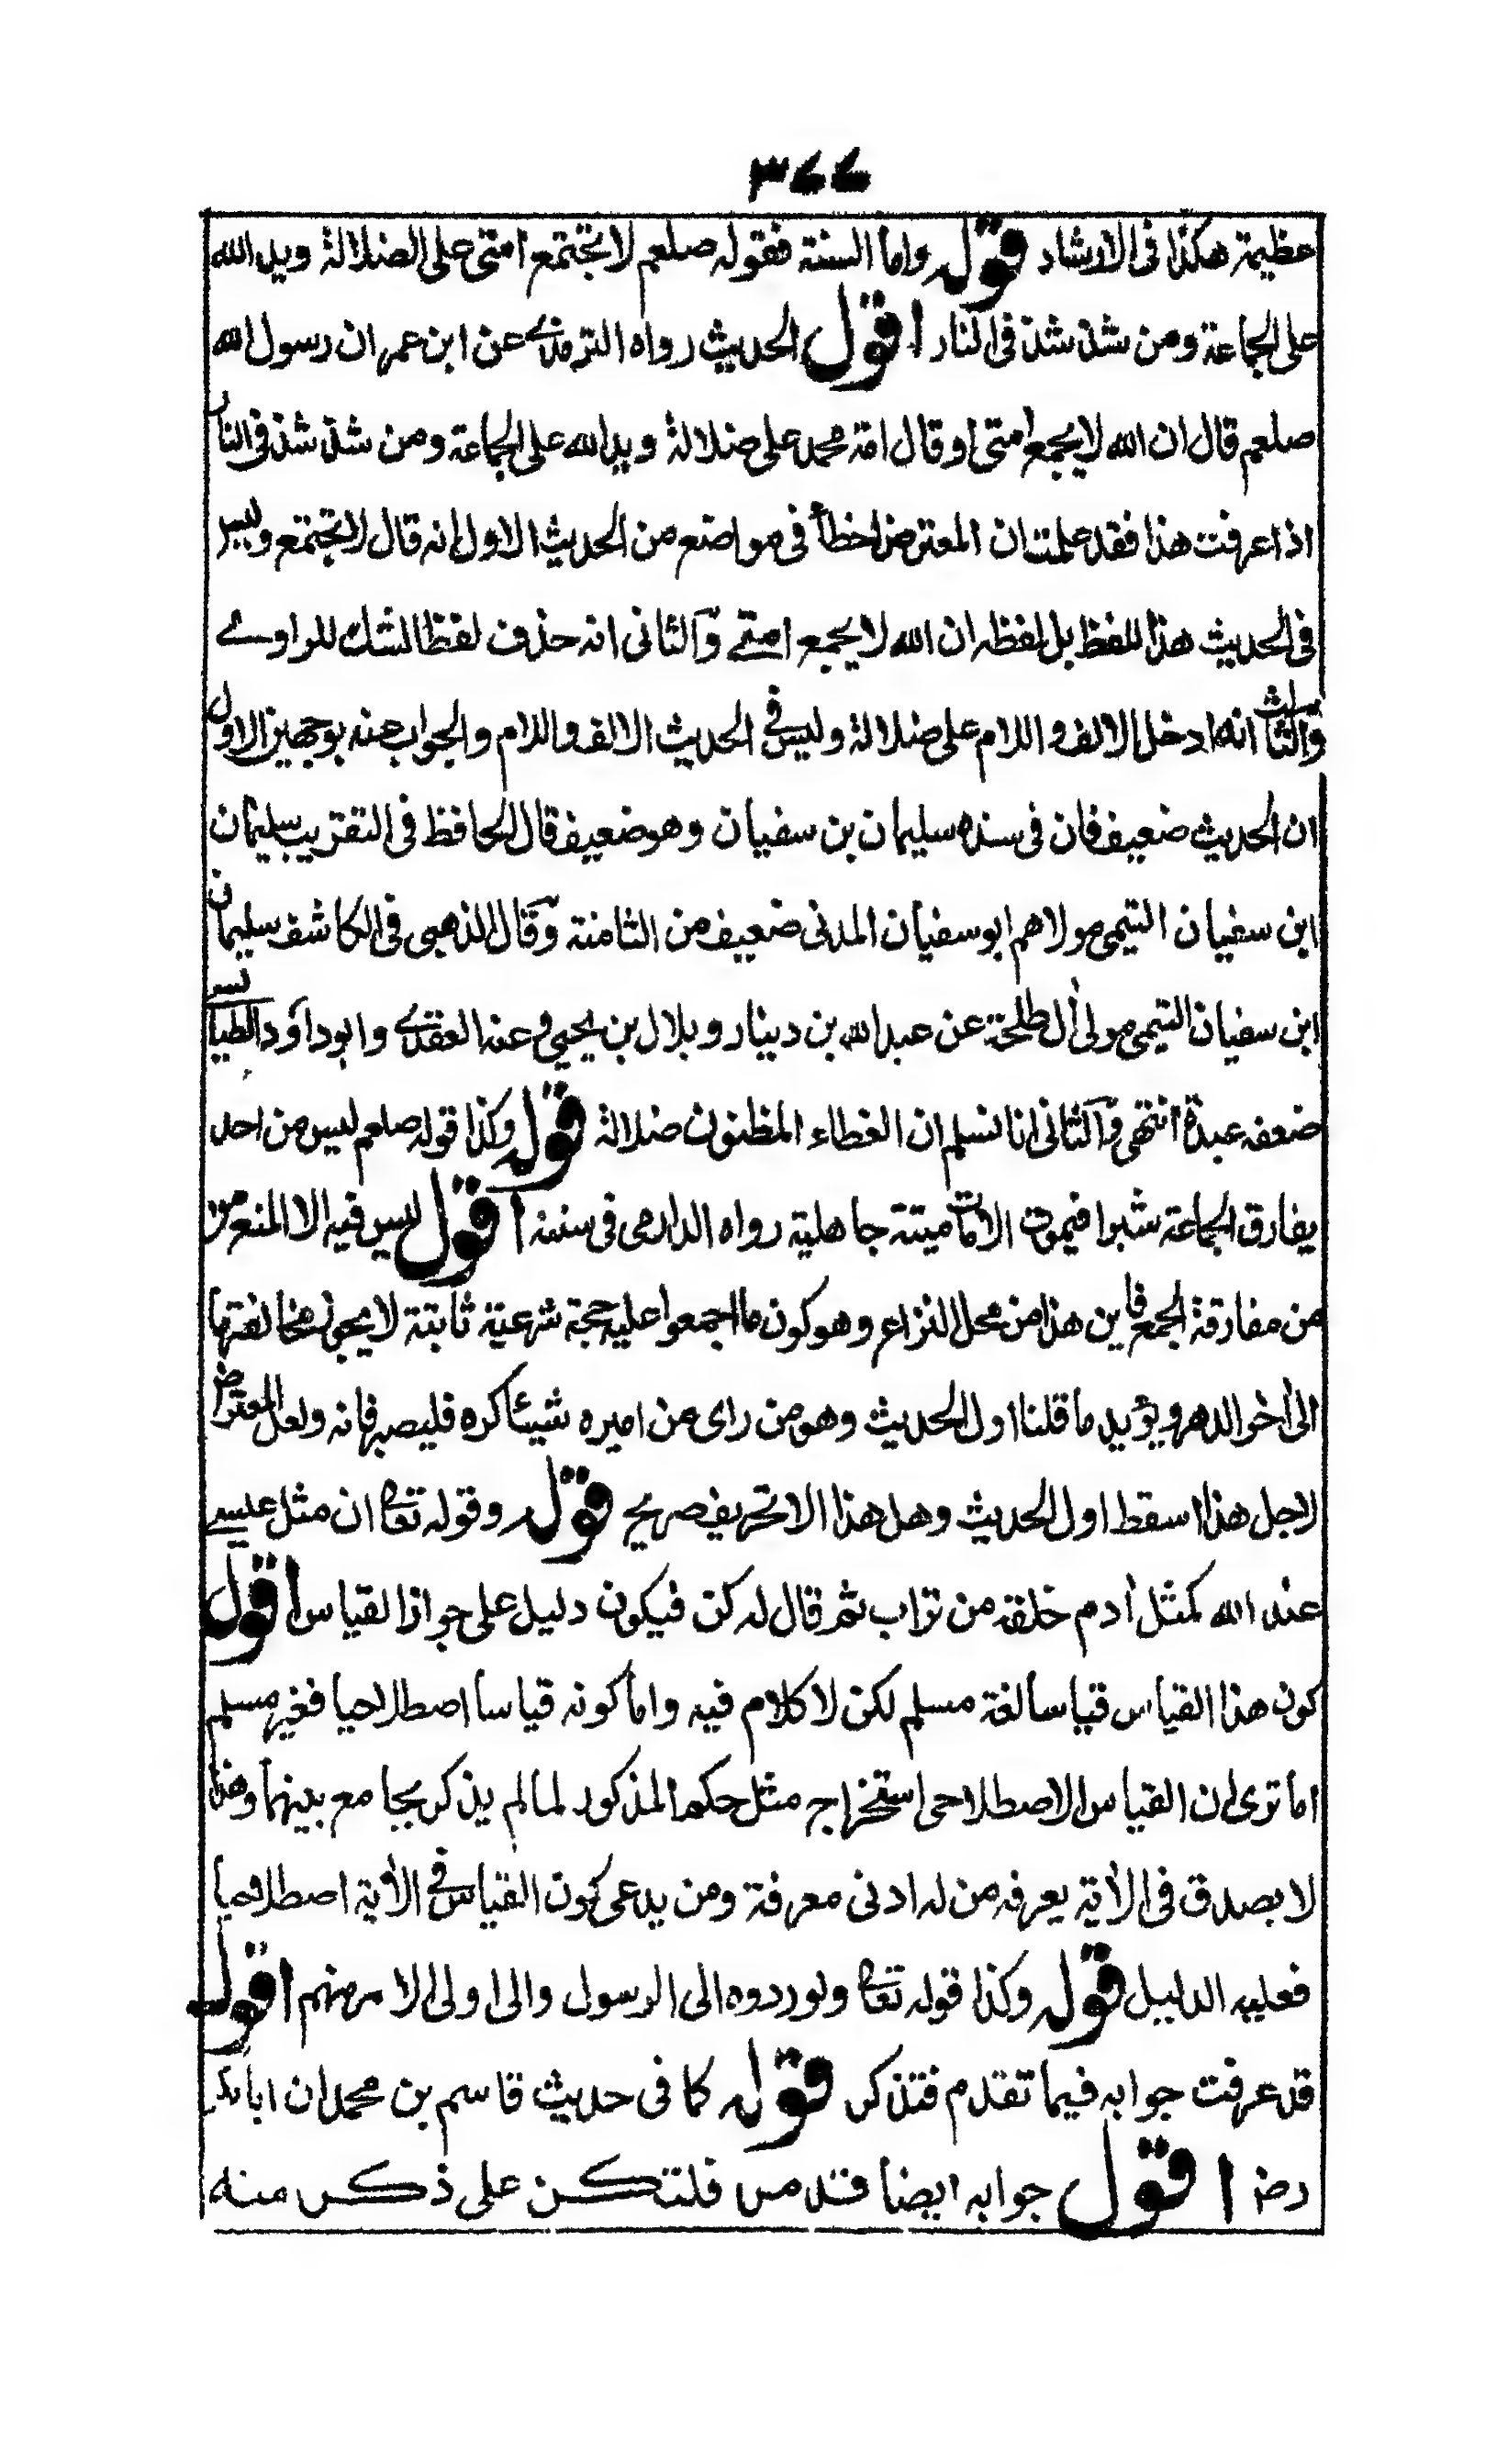 ٣٧٧
عظيمة هكذا فى الارشاد قوله واما السنة فقوله صلعم لا تجتمع امتى على الضلالة ويد الله
على الجماعة ومن شذ شذ فى النار اقول الحديث رواه الترمذى عن ابن عمر ان رسول الله
صلعم قال ان الله لا يجمع امتى او قال امة محمد على ضلالة ويد الله على الجماعة ومن شذ شذ فى النار
اذا عرفت هذا فقد علمت ان المعترض اخطأ فى مواضع من الحديث الاول انه قال لا تجتمع وليس
فى الحديث هذا اللفظ بل لفظه ان الله لا يجمع امتى والثانى انه حذف لفظ الشك للراوے
والثالث انه ادخل الالف واللام على ضلالة وليس فى الحديث الالف واللام والجواب عنه بوجهين الاول
ان الحديث ضعيف فان فى سنده سليمان بن سفيان وهو ضعيف قال الحافظ فى التقريب سليمان
ابن سفيان التيمى مولاهم ابو سفيان المدنى ضعيف من الثامنة وقال الذهبى فى الكاشف سليمان
ابن سفيان التيمى مولى أل طلحة عن عبد الله بن دينار وبلال بن يحيى وعنه العقدے وابو داود الطيالسے
ضعفه عبدة انتهى والثانى انا نسلم ان الغطاء المظنون ضلالة قوله وكذا قوله صلعم ليس من احد
يفارق الجماعة شبرا فيموت الا مات ميتة جاهلية رواه الدارمى فى سننه اقول ليس فيه الا المنع من
من مفارقة الجمع فاين هذا من محل النزاع وهو كون ما اجمعوا عليه حجة شرعية ثابتة لا يجوز مخالفتها
الى أخر الدهر ويؤيد ما قلنا اول الحديث وهو من راى من اميره شيئا كره فليصبر فانه ولعل المعترض
لاجل هذا اسقط اول الحديث وهل هذا الا تحريف صريح قوله وقوله تعالى ان مثل عيسے
عند الله كمثل أدم خلقه من تراب ثم قال له كن فيكون دليل على جواز القياس اقول
كون هذا القياس قياسا لغة مسلم لكن لا كلام فيه واما كونه قياسا اصطلاحيا فغير مسلم
اما ترى ان القياس الاصطلاحى استخراج مثل حكم المذكور لما لم يذكر بجامع بينهما وهذا
لا يصدق فى الأية يعرفه من له ادنى معرفة ومن يدعى كون القياس فى الأية اصطلاحيا
فعليه الدليل قوله وكذا قوله تعالى ولو ردوه الى الرسول والى اولى الامر منهم اقول
قد عرفت جوابه فيما تقدم فتذكر قوله كما فى حديث قاسم بن محمد ان ابابكر
رضـ اقول جوابه ايضا قد مر فلتكن على ذكر منه